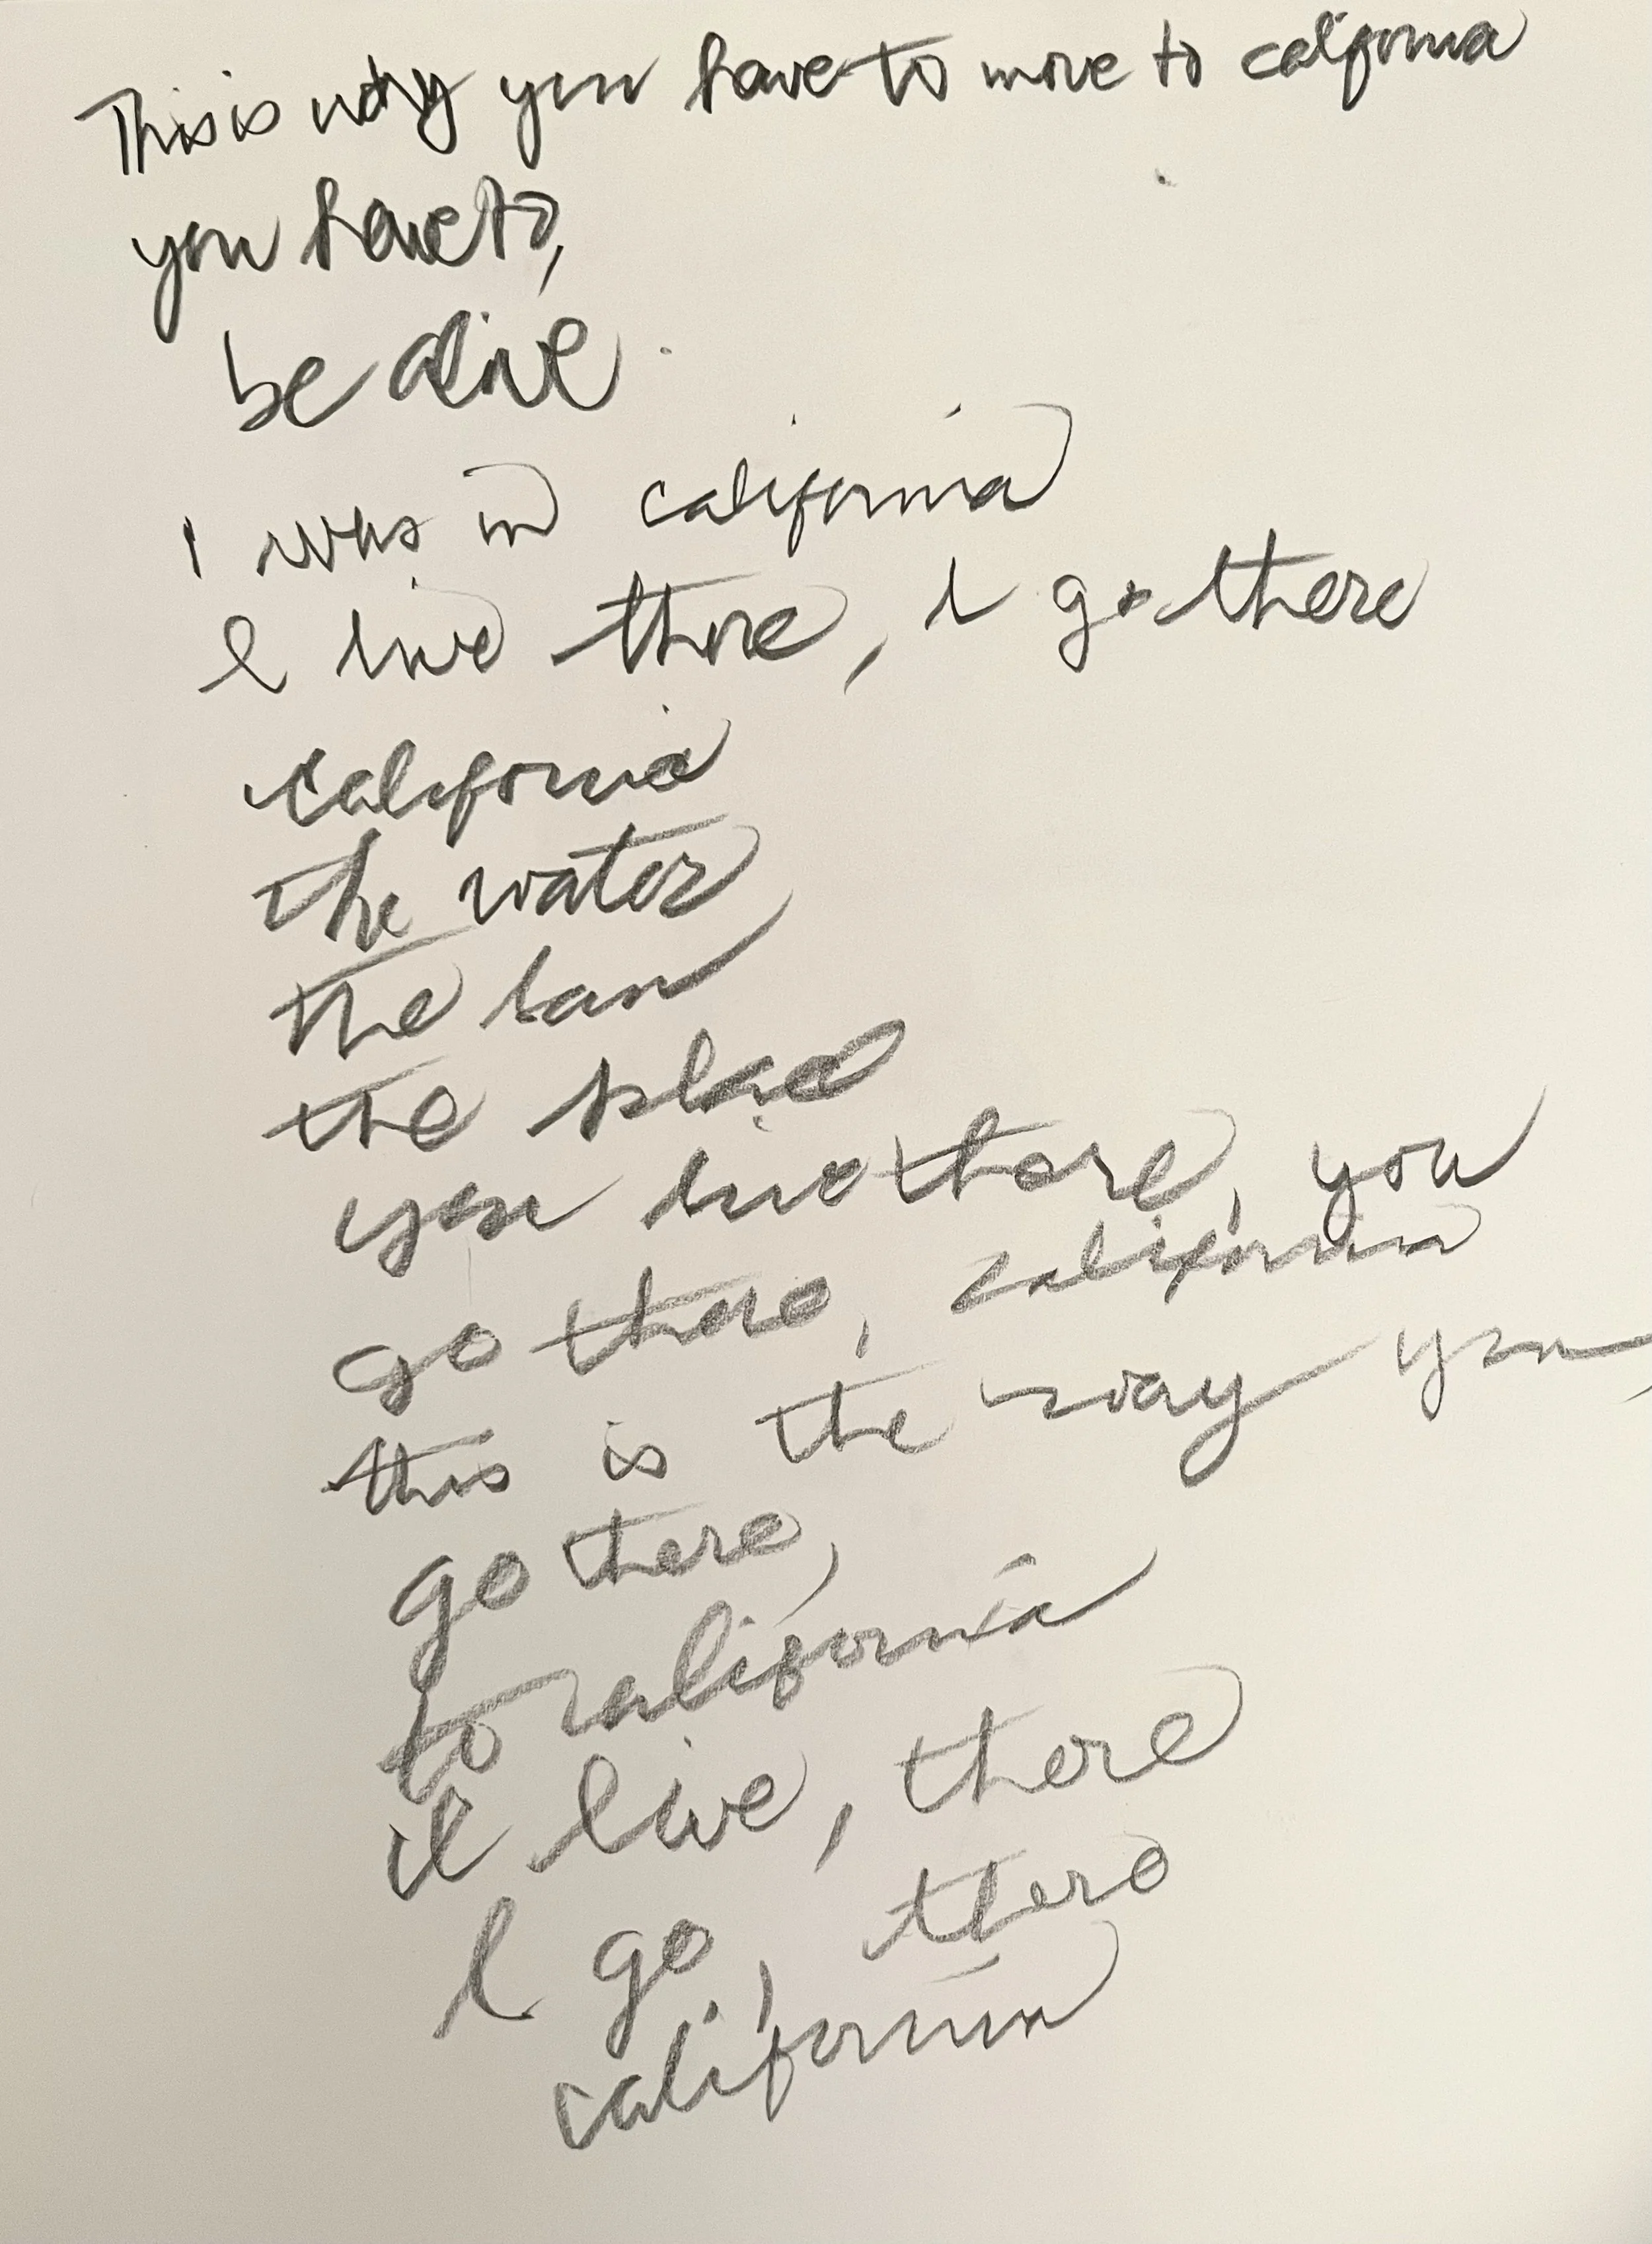 This is why you have to move to california
you have to,
be alive.
I was in california
I live there, I go there
california
the water
the
the
you live there, you
go there, california
this is the way you,
go there,
to california
I live, there
I go, there
california